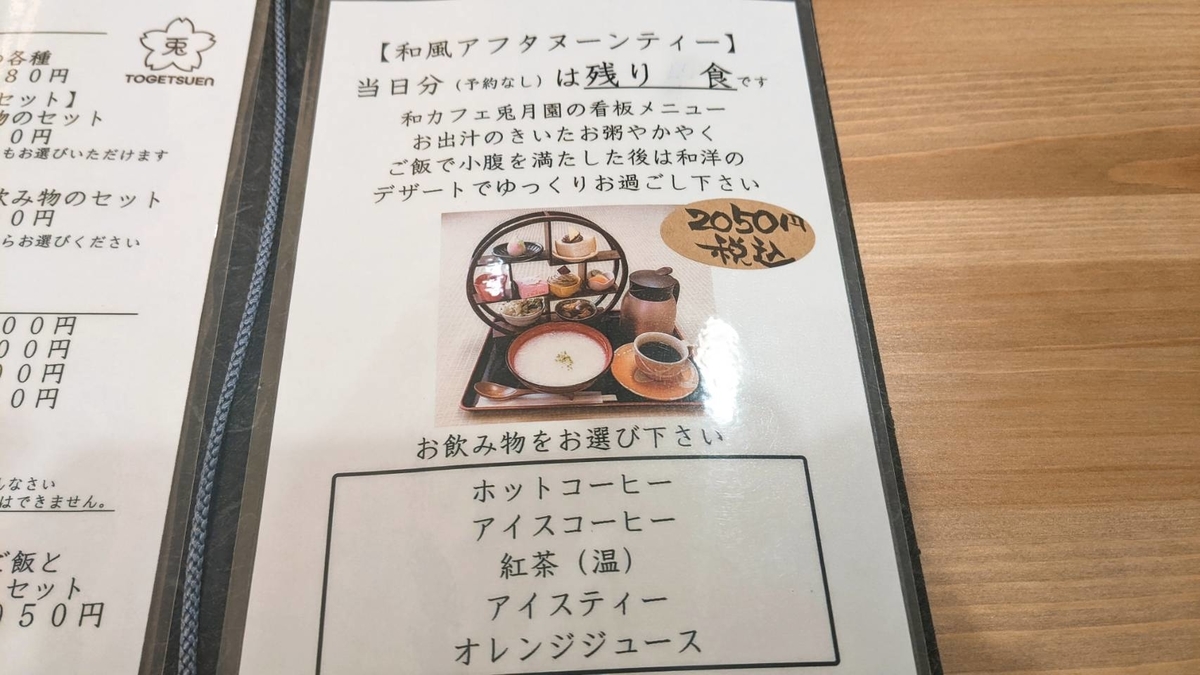 各種
80円
セット】
物のセット
0円
もお選びいただけます
飲み物のセット
0円
らお選びください
00円
00円
00円
0円
んなさい
はできません。
ご飯と
セット
950円
兎
TOGETSUEN
【和風アフタヌーンティー】
当日分(予約なし)は残り 食です
和カフェ兎月園の看板メニュー
お出汁のきいたお粥やかやく
ご飯で小腹を満たした後は和洋の
デザートでゆっくりお過ごし下さい
2050円
税込
お飲み物をお選び下さい
ホットコーヒー
アイスコーヒー
紅茶(温)
アイスティー
オレンジジュース